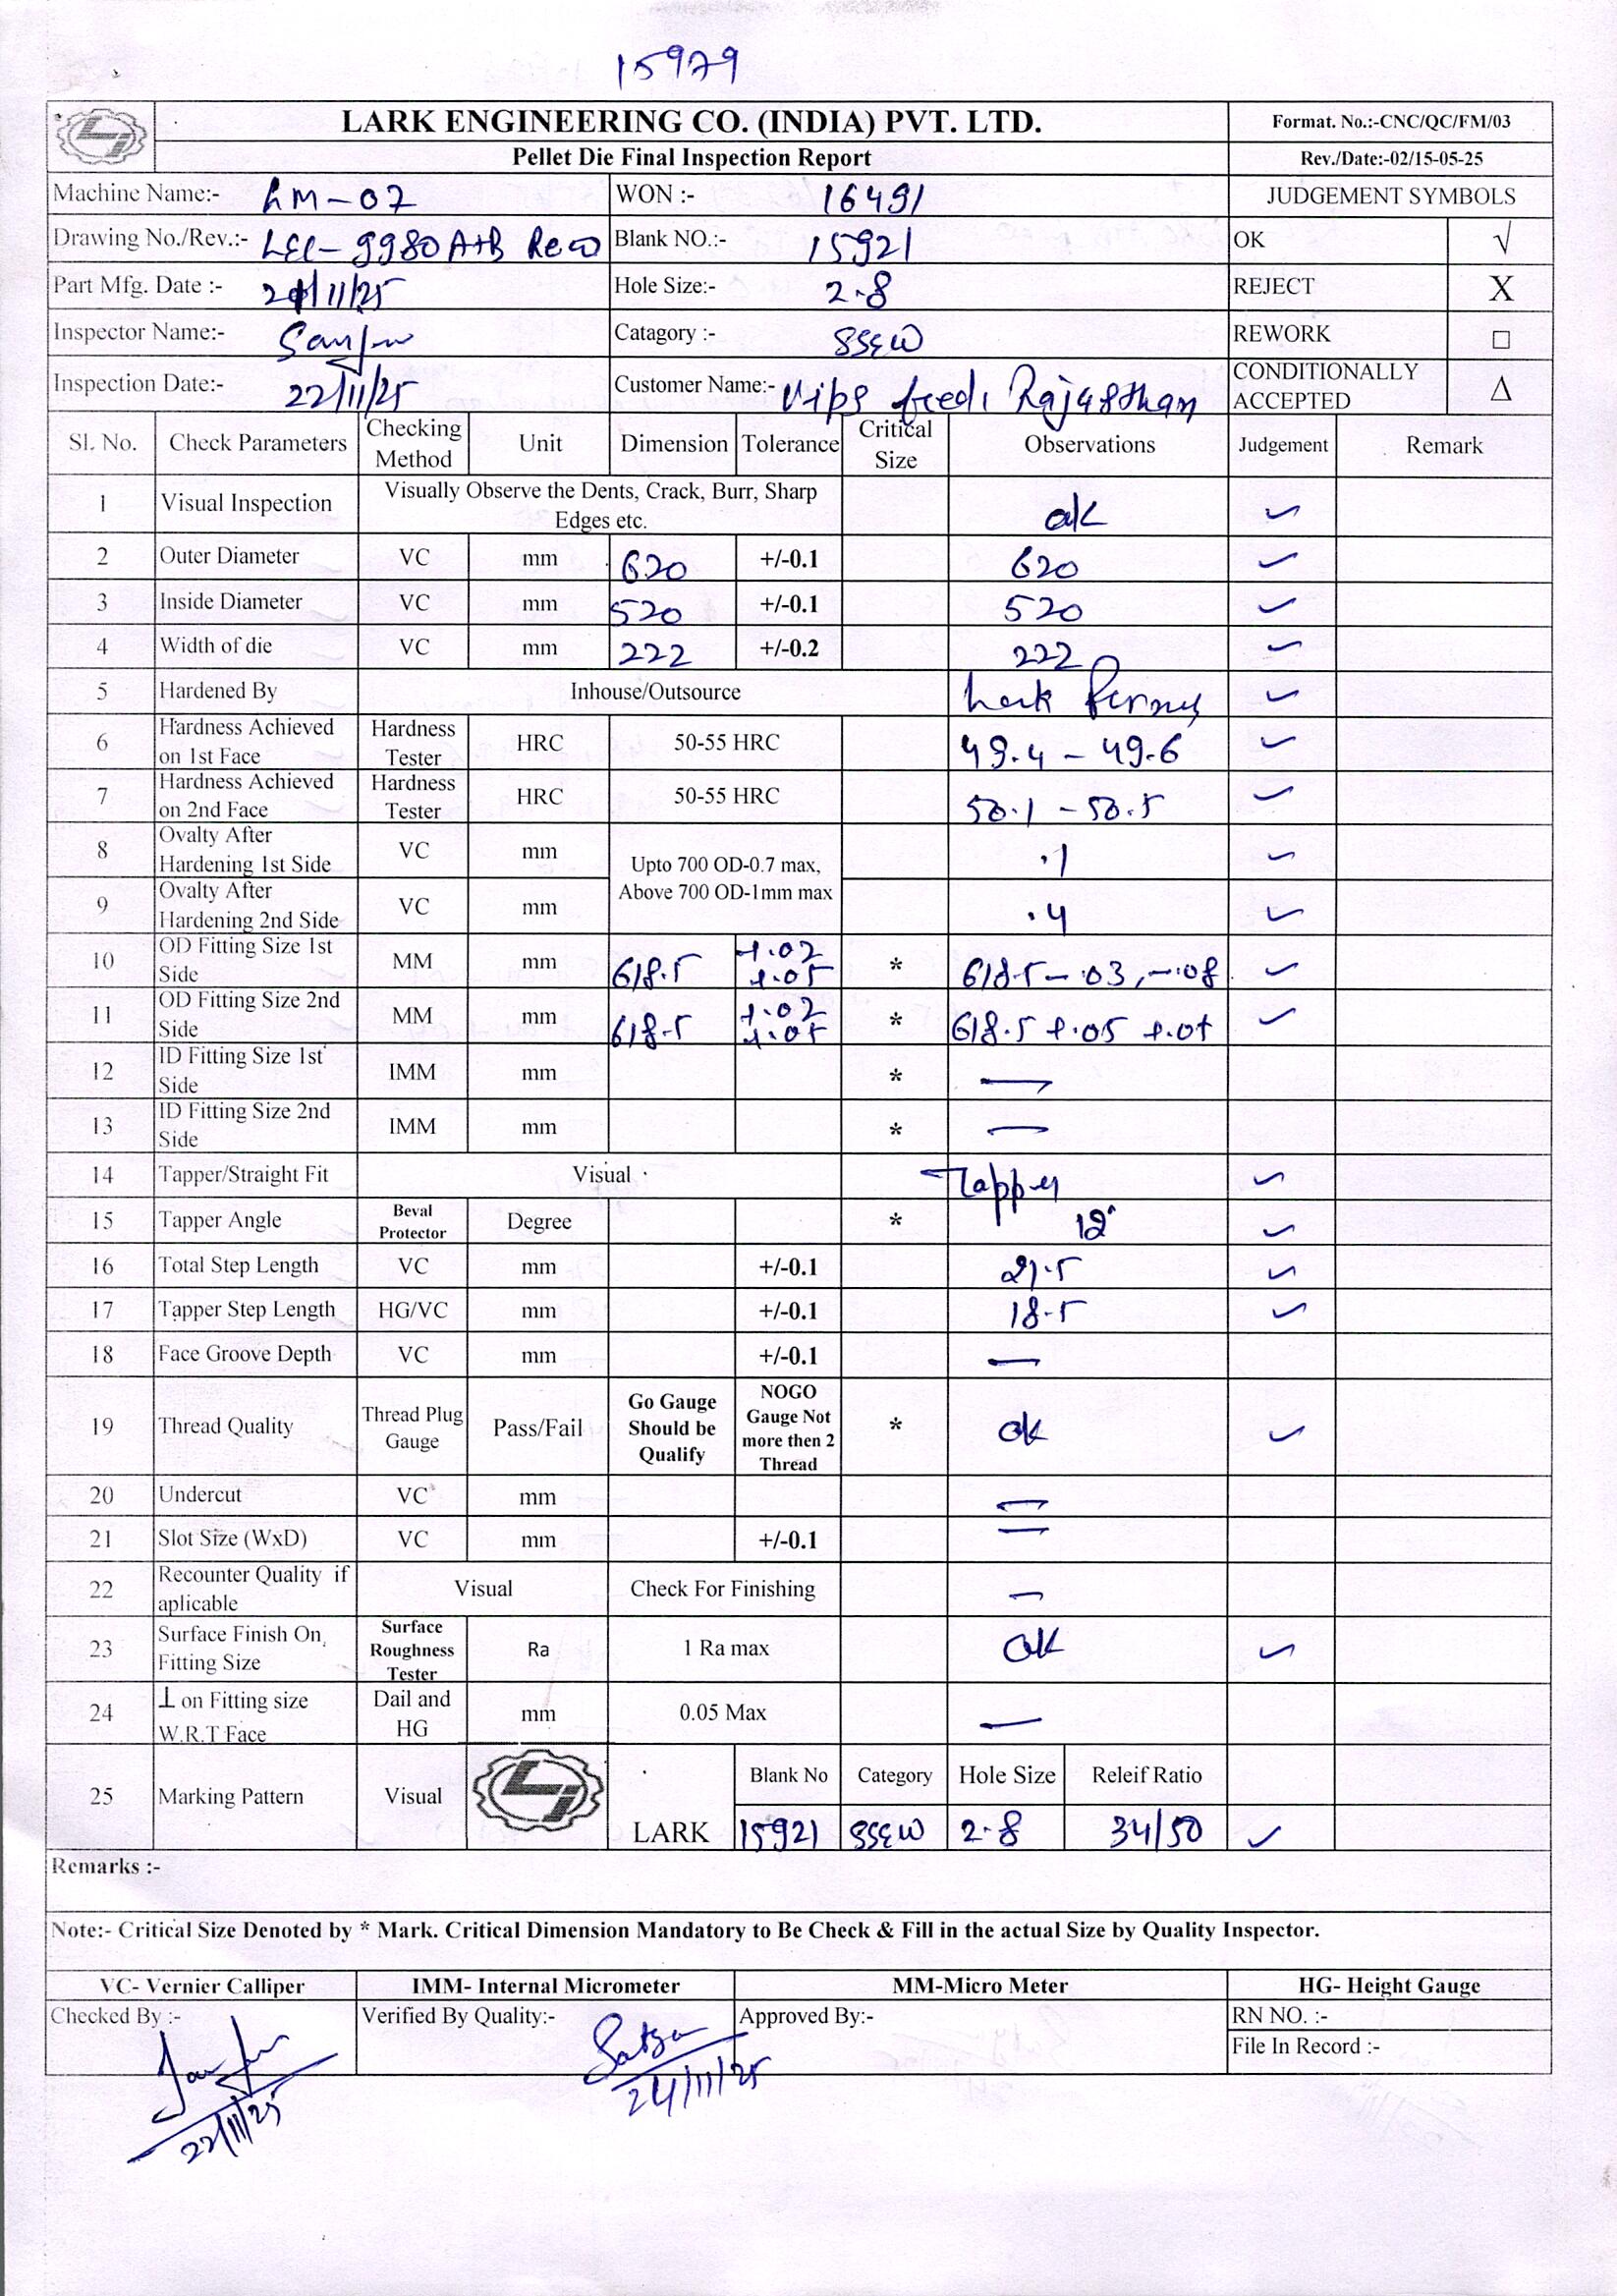 15979
LARK ENGINEERING CO. (INDIA) PVT. LTD.
Format. No.:-CNC/QC/FM/03
Pellet Die Final Inspection Report
Rev./Date:-02/15-05-25
Machine Name:- LM-07 WON :- 16491 JUDGEMENT SYMBOLS
Drawing No./Rev.:- LEC-9980 A+B Blank NO.:- 15921 OK √
Part Mfg. Date :- 21/11/25 Hole Size:- 2.8 REJECT X
Inspector Name:- Catagory :- SSEW REWORK □
Inspection Date:- 22/11/25 Customer Name:- Vips feeds Rajasthan CONDITIONALLY ACCEPTED Δ
Sl. No. Check Parameters Checking Method Unit Dimension Tolerance Critical Size Observations Judgement Remark
1 Visual Inspection Visually Observe the Dents, Crack, Burr, Sharp Edges etc. ok ✓
2 Outer Diameter VC mm 620 +/-0.1 620 ✓
3 Inside Diameter VC mm 520 +/-0.1 520 ✓
4 Width of die VC mm 222 +/-0.2 222 ✓
5 Hardened By Inhouse/Outsource Lark ✓
6 Hardness Achieved on 1st Face Hardness Tester HRC 50-55 HRC 49.4 - 49.6 ✓
7 Hardness Achieved on 2nd Face Hardness Tester HRC 50-55 HRC 50.1 - 50.5 ✓
8 Ovalty After Hardening 1st Side VC mm Upto 700 OD-0.7 max, Above 700 OD-1mm max .1 ✓
9 Ovalty After Hardening 2nd Side VC mm .4 ✓
10 OD Fitting Size 1st Side MM mm 618.5 +.02 +.05 * 618.5 - .03, -.08 ✓
11 OD Fitting Size 2nd Side MM mm 618.5 +.02 +.05 * 618.5 +.05 ✓
12 ID Fitting Size 1st Side IMM mm * —
13 ID Fitting Size 2nd Side IMM mm * —
14 Tapper/Straight Fit Visual Tapper ✓
15 Tapper Angle Beval Protector Degree * ✓
16 Total Step Length VC mm +/-0.1 21.5 ✓
17 Tapper Step Length HG/VC mm +/-0.1 18.5 ✓
18 Face Groove Depth VC mm +/-0.1 —
19 Thread Quality Thread Plug Gauge Pass/Fail Go Gauge Should be Qualify NOGO Gauge Not more then 2 Thread * ok ✓
20 Undercut VC mm —
21 Slot Size (WxD) VC mm +/-0.1 —
22 Recounter Quality if aplicable Visual Check For Finishing —
23 Surface Finish On Fitting Size Surface Roughness Tester Ra 1 Ra max OK ✓
24 ⊥ on Fitting size W.R.T Face Dail and HG mm 0.05 Max —
25 Marking Pattern Visual LARK Blank No Category Hole Size Releif Ratio
15921 SSEW 2.8 34/50 ✓
Remarks :-
Note:- Critical Size Denoted by * Mark. Critical Dimension Mandatory to Be Check & Fill in the actual Size by Quality Inspector.
VC- Vernier Calliper IMM- Internal Micrometer MM-Micro Meter HG- Height Gauge
Checked By :- Verified By Quality:- Approved By:- RN NO. :-
File In Record :-
22/11/25 24/11/25